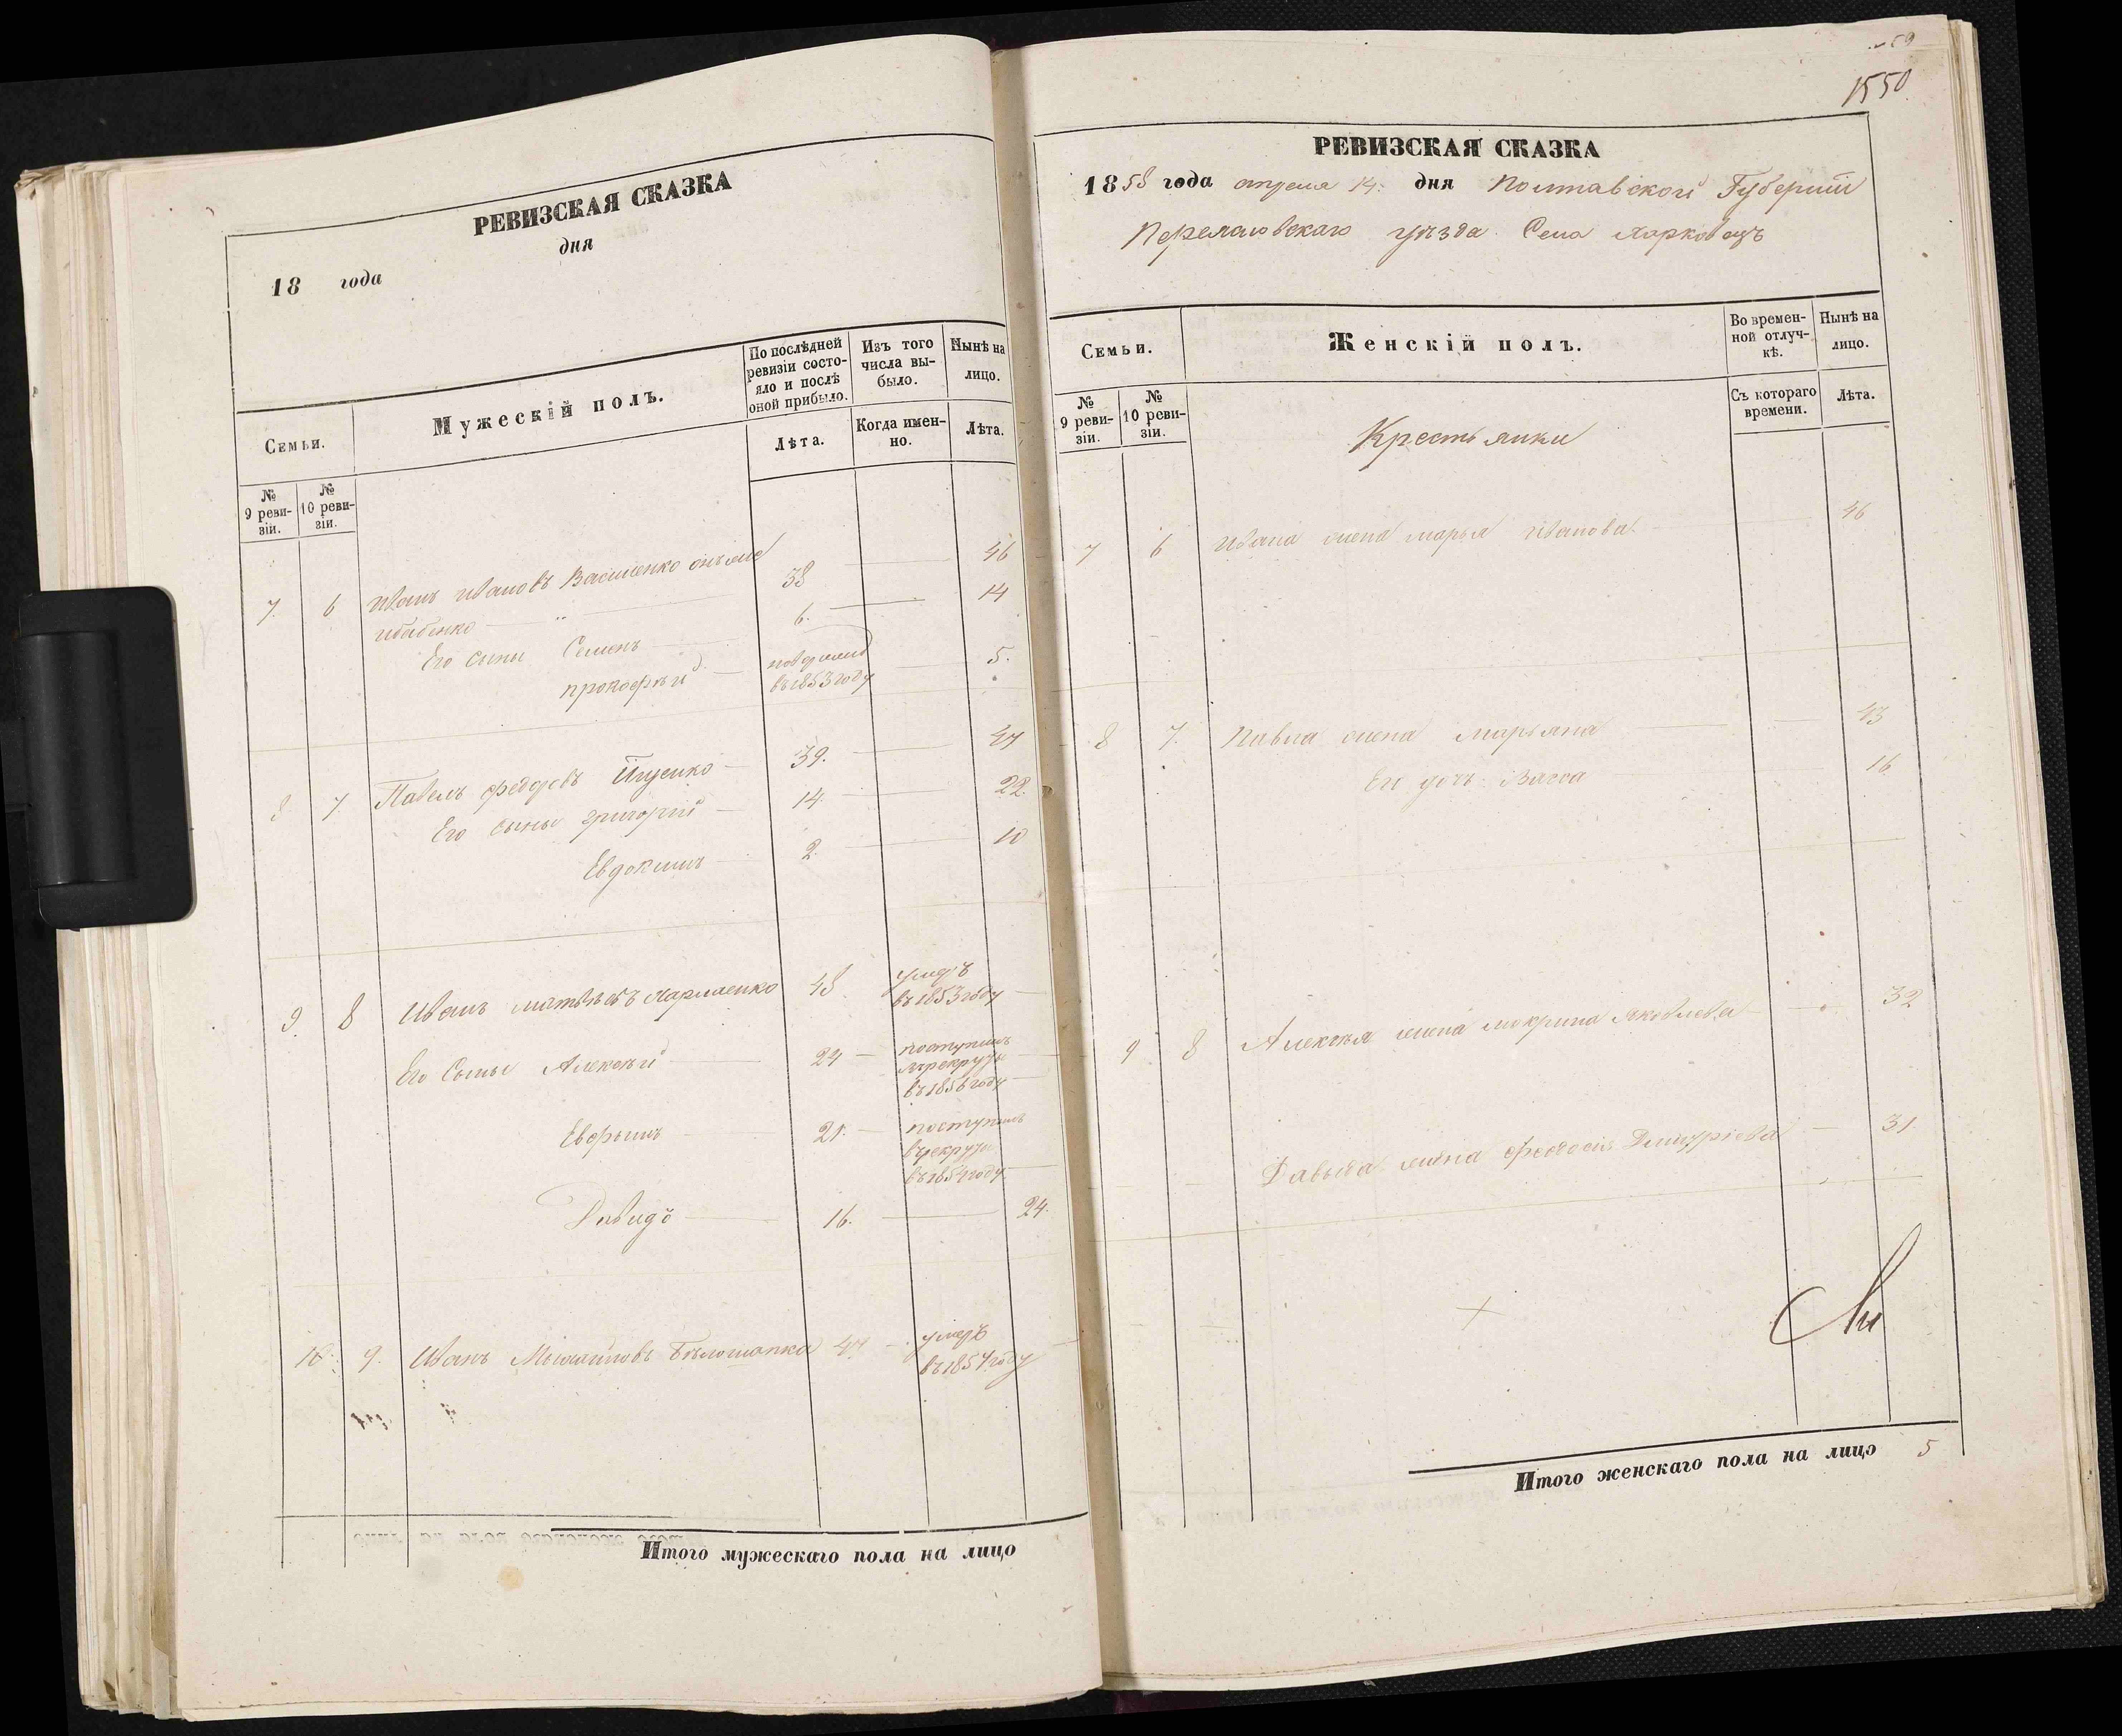 РЕВИЗСКАЯ СКАЗКА
18 года дня
Семьи.
Мужескій полъ.
По послѣдней ревизіи состо-
яло и послѣ оной прибыло.
Изъ того числа вы-
было.
Нынѣ на лицо.
№ 9 реви-
зіи.
№ 10 реви-
зіи.
Лѣта.
Когда имен-
но.
Лѣта.
7. 6 Иванъ Ивановъ 38 46
Его сыны Семенъ 6. 14
прокофѣй въ 1853 году 5.
8. 7. Павелъ федоровъ 39. 47
Его сыны григорій 14. 22.
Евдокимъ 2. 10
9. 8 Иванъ 48 умеръ
въ 1853 году
Его Сыны Алексѣй 24 поступилъ
въ 1856 году
Ефимъ 21. поступилъ
въ рекруты
въ 1854 году
Давидъ 16. 24.
10. 9. Иванъ Бѣлошапка 47 умеръ
въ 1854 году
Итого мужескаго пола на лицо
1550
РЕВИЗСКАЯ СКАЗКА
1858 года апреля 14. дня Полтавской Губерніи
уѣзда Села
Семьи.
Женскій полъ.
Во времен-
ной отлуч-
кѣ.
Нынѣ на лицо.
№ 9 реви-
зіи.
№ 10 реви-
зіи.
Съ котораго времени.
Лѣта.
Крестьянки
7 6 Ивана жена марья Иванова 46
8 7. Павла жена марьяна 43
Его дочь Васса 16
9 8 Алексѣя жена мокрина Яковлева 32
Давыда жена феодосія Дмитріева 31
Итого женскаго пола на лицо 5